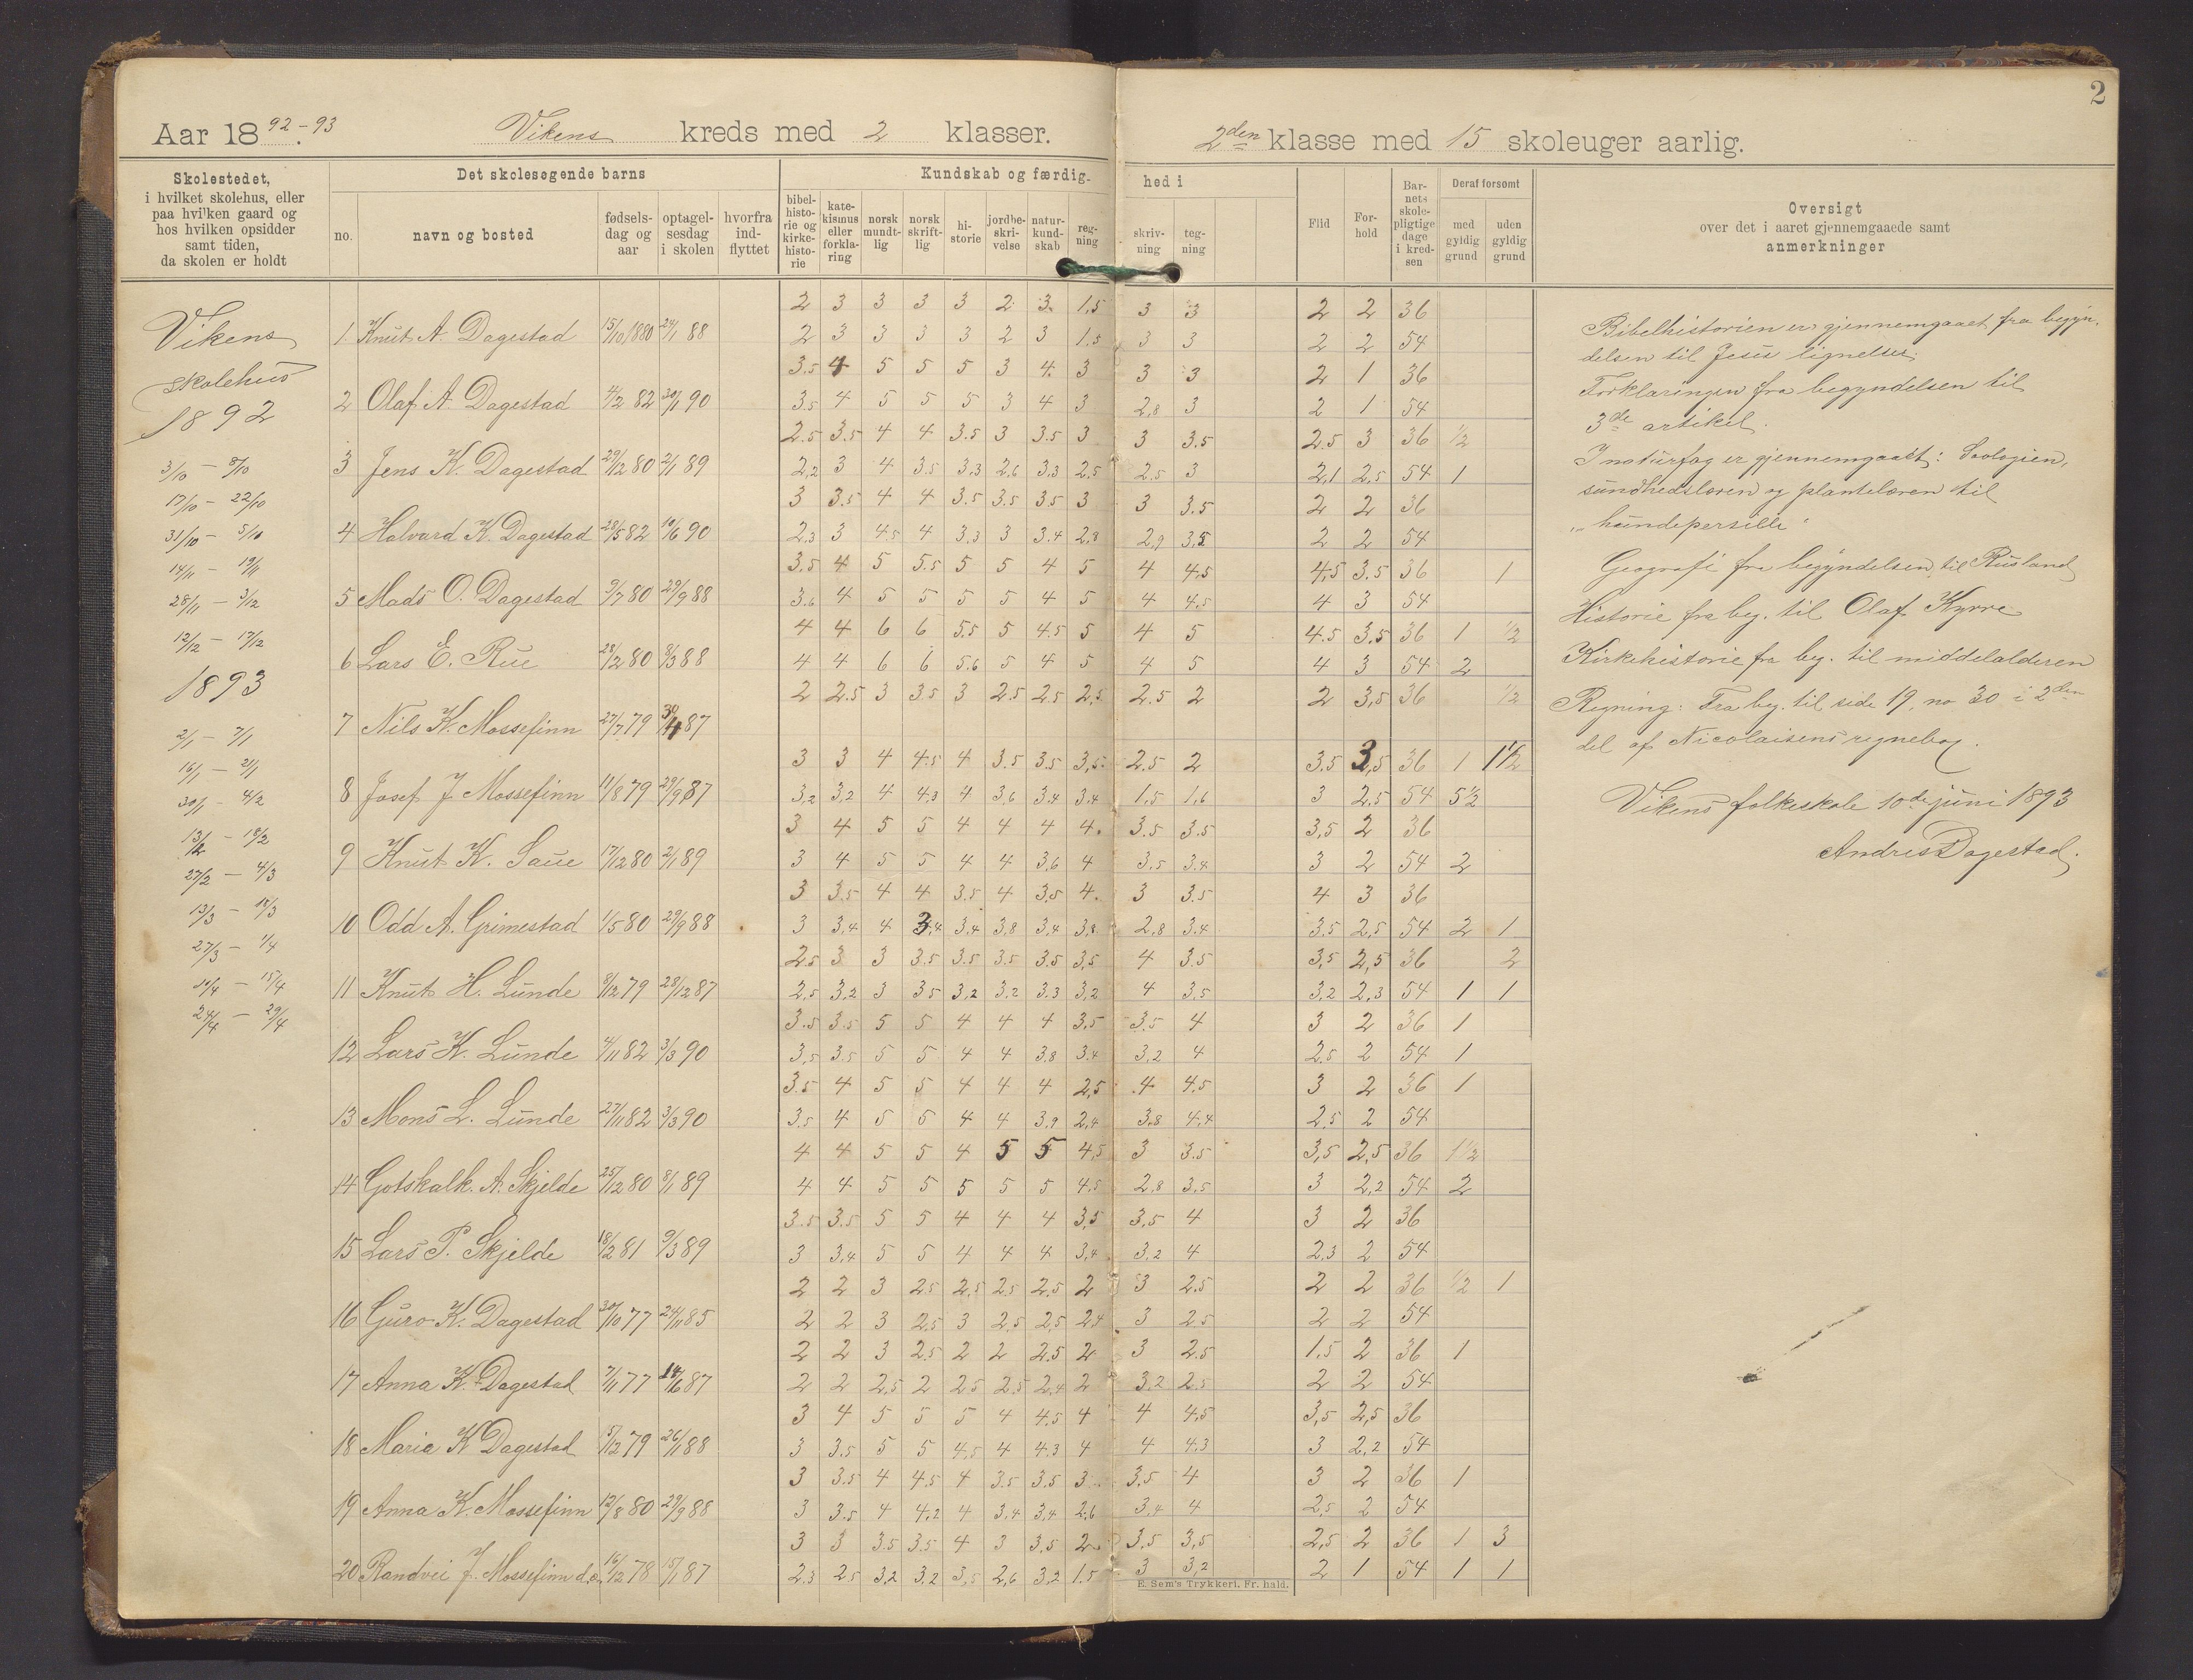 2
Aar 1892-93. Vikens kreds med 2 klasser. 2den klasse med 15 skoleuger aarlig.
Skolestedet, i hvilket skolehus, eller paa hvilken gaard og hos hvilken opsidder samt tiden, da skolen er holdt
Det skolesøgende barns
no.
navn og bosted
fødsels-dag og aar
optagel-sesdag i skolen
hvorfra ind-flyttet
Kundskab og færdig-hed i
bibel-histo-rie og kirke-histo-rie
kate-kismus eller forkla-ring
norsk mundt-lig
norsk skrift-lig
hi-storie
jordbe-skri-velse
natur-kund-skab
reg-ning
skriv-ning
teg-ning
Flid
For-hold
Bar-nets skole-pligtige dage i kred-sen
Deraf forsømt
med gyldig grund
uden gyldig grund
Oversigt
over det i aaret gjennemgaaede samt
anmerkninger
Vikens
skolehus
1892
3/10 - 8/10
17/10 - 22/10
31/10 - 5/10
14/11 - 19/11
28/11 - 3/12
12/12 - 17/12
1893
2/1 - 7/1
16/1 - 21/1
30/1 - 4/2
13/2 - 18/2
27/2 - 4/3
13/3 - 18/3
27/3 - 1/4
10/4 - 15/4
24/4 - 29/4
2 3 3 3 3 2 3 1,5 3 3 2 2 36
1 Knut A. Dagestad 15/10 1880 24/1 88 2 3 3 3 3 2 3 1.5 3 3 2 2 54
3.5 4 5 5 5 3 4 3 3 3 2 1 36
2 Olaf A. Dagestad 4/2 82 30/1 90 3.5 4 5 5 5 3 4 3 2,8 3 2 1 54
2.5 3.5 4 4 3.5 3 3.5 3 3 3.5 2.5 3 36 1/2
3 Jens K. Dagestad 29/12 80 2/1 89 2,2 3 4 3.5 3,3 2,6 3,3 2,5 2.5 3 2,1 2,5 54 1
3 3.5 4 4 3.5 3.5 3.5 3 3 3.5 2 2 36
4 Halvard K. Dagestad 28/5 82 10/6 90 2,3 3 4.5 4 3,3 3 3.4 2,8 2,9 3,5 2 2 54
3.5 4 5 5.5 5 5 4 5 4 4,5 4,5 3.5 36 1
5 Mads O. Dagestad 9/7 80 29/9 88 3.6 4 5 5 5 5 4 5 4 4,5 4 3 54
4 4 6 6 5.5 5 4.5 5 4 5 4.5 3.5 36 1 1/2
6 Lars E. Rue 28/2 80 8/3 88 4 4 6 6 5.6 5 4 5 4 5 4 3 54 2
2 2.5 3 3.5 3 2.5 2.5 2,5 2.5 2 2 3,5 36 1/2
7 Nils K. Mossefinn 27/7 79 30/4 87
3 3 4 4.5 4 3.5 3.5 3,5 2.5 2 3.5 3,5 36 1 1 1/2
8 Josef J Mossefinn 11/8 79 29/9 87 3,2 3,2 4 4,3 4 3,6 3,4 3.4 1,5 1,6 3 2,5 54 5 1/2
3 4 5 5 4 4 4 4 3.5 3.5 3,5 2 36
9 Knut K. Saue 17/12 80 2/1 89 3 4 5 5 4 4 3,6 4 3,5 3.4 3 2 54 2
3 3.5 4 4 3.5 4 3,5 4 3 3.5 4 3 36
10 Odd A. Grimestad 1/5 80 29/9 88 3 3,4 4 3,4 3,4 3,8 3,4 3,8 2,8 3.4 3.5 2,5 54 2 1
2.5 3 3 3.5 3.5 3.5 3.5 3,5 4 3.5 3,5 2,5 36 2
11 Knut H. Lunde 8/12 79 28/12 87 2,5 3,2 3 3.5 3,2 3,2 3.3 3,2 4 3,5 3,2 2,3 54 1 1
3.5 3.5 5 5 4 4 4 3,5 3.5 4 3 2 36 1
12 Lars K. Lunde 4/11 82 3/3 90 3,5 3.5 5 5 4 4 3.8 3.4 3,2 4 2,5 2 54 1
3.5 4 5 5 4 4 4 2,5 4 4,5 3 2 36 1
13 Mons L. Lunde 27/11 82 3/3 90 3.5 4 5 5 4 4 3,9 2,4 3,8 4,4 2,5 2 54
4 4 5 5 4 5 5 4,5 3 3.5 3,5 2,5 36 1 1/2
14 Gotskalk. A. Skjelde 25/12 80 8/1 89 4 4 5 5 5 5 5 4.5 2,8 3,5 3 2,2 54 2
3.5 3.5 5 5 4 4 4 3,5 3,5 4 3 2 36
15 Lars P. Skjelde 18/2 81 9/3 89 3 3,4 5 5 4 4 4 3,4 3,2 4 2,3 2 54
2 2 3 2.5 2,5 2,5 2,5 2 3 2.5 2 2 36 1/2 1
16 Guro K. Dagestad 30/10 77 24/11 85 2 2 3 2.5 3 2,5 2,5 2,4 3 2.5 2 2 54
2 2 3 2.5 2 2 2.5 2 3 2.5 1,5 2 36 1
17 Anna K. Dagestad 7/11 77 14/6 87 2 2 2,5 2 2.5 2.5 2,4 2 3,2 2.5 2 2 54
3 4 5 5 5 4 4,5 4 4 4,5 3,5 2,5 36
18 Maria K Dagestad 5/12 79 26/1 88 3 3,5 5 5 4,5 4 4,3 4 4 4,3 3 2,2 54
3 3.5 4 4.5 4 3.5 3,5 3 3,5 4 3 2 36 1
19 Anna K. Mossefinn 12/8 80 29/9 88 3 3.5 4 4,2 4 3,4 3,4 2,6 3,4 4 2,5 2 54
3 3 3.5 3.5 4 3 3,5 2 3,5 3,5 2,5 2 36 1 3
20 Randvei J. Mossefinn d.e. 16/12 78 15/1 87 2,3 2,5 3,2 3,2 3,5 2,6 3,2 1.5 3 3,2 2 1 54 1 1
Bibelhistorien er gjennemgaaet fra begyn-
delsen til Jesus lignelser.
Forklaringen fra begyndelsen til
3de artikel.
I naturfag er gjennemgaaet: Soologien,
sundhedslæren og plantelæren til
"hundepersille"
Geografi fra begyndelsen til Rusland
Historie fra beg. til Olaf Kyrre
Kirkehistorie fra beg. til middelalderen
Regning: Fra beg. til side 19, no 30 i 2den
del af Nicolaisens regnebog.
Vikens folkeskole 10de juni 1893
Andres Dagestad.
E. Sem's Trykkeri. Fr. hald.